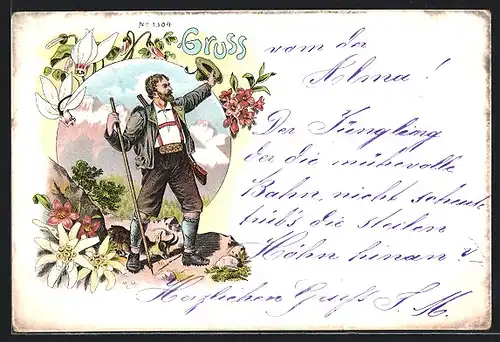 No. 1304
Gruss
von der
Alma!
Der Jüngling
der die mühevolle
Bahn, nicht scheute
trieb's die steilen
Höhn hinan
Herzlichen Gruß J. M.